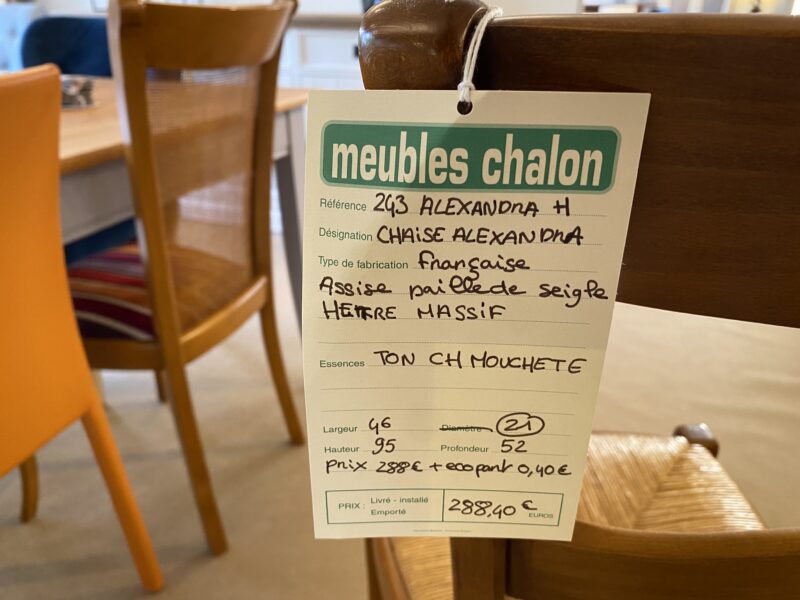 meubles chalon
Référence 243 ALEXANDRA H
Désignation CHAISE ALEXANDRA
Type de fabrication Française
Assise paille de seigle
HETRE MASSIF
Essences TON CH MOUCHETE
Largeur 46 Diamètre 21
Hauteur 95 Profondeur 52
prix 288€ + ecopart 0,40€
PRIX : Livré - installé
Emporté
288,40€ EUROS